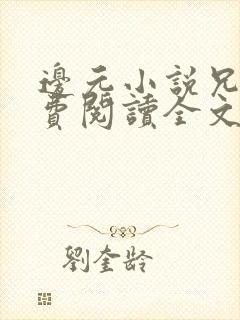 邊元小說兄
費閱讀全文
劉奎齡